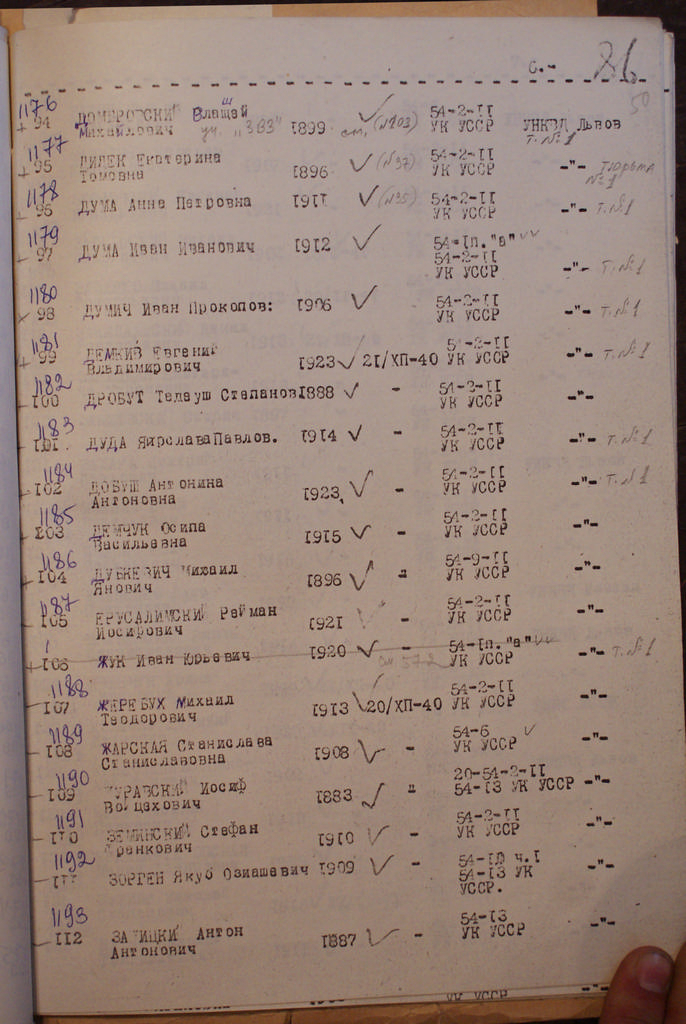 с.- 86
50
1176
94 ДОМБРОВСКИЙ Влащей Михайлович уч. "383" 1899 см. (№203) 54-2-II УК УССР УНКВД Львов т. №1
1177
95 Екатерина Томовна 1896 (№37) 54-2-II УК УССР -"- тюрьма №1
1178
96 ДУМА Анна Петровна 1911 (№35) 54-2-II УК УССР -"- т. №1
1179
97 ДУМА Иван Иванович 1912 54-Iп."а" 54-2-II УК УССР -"- т. №1
1180
98 ДУМИЧ Иван Прокопов: 1906 54-2-II УК УССР -"- т. №1
1181
99 ДЕМКИВ Евгений Владимирович 1923 21/ХП-40 5 -2-II УК УССР -"- т. №1
1182
100 ДРОБУТ Тадауш Степанов 1888 - 54-2-II УК УССР -"-
1183
101 ДУДА Ярослава Павлов. 1914 - 54-2-II УК УССР -"- т. №1
1184
102 ДОБУШ Антонина Антоновна 1923 - 54-2-II УК УССР -"- т. №1
1185
103 ДЕМЧУК Осипа Васильевна 1915 - 54-2-II УК УССР -"-
1186
104 ДУБКЕВИЧ Михаил Янович 1896 " 54-9-II УК УССР -"-
1187
105 ЕРУСАЛИМСКИЙ Рейман Иосифович 1921 - 54-2-II УК УССР -"-
106 ЖУК Иван Юрьевич 1920 - см 572 54-Iп."а" УК УССР -"- т. №1
1188
107 ЖЕРЕБУХ Михаил Теодорович 1913 20/ХП-40 54-2-II УК УССР -"-
1189
108 ЖАРСКАЯ Станислава Станиславовна 1908 - 54-6 УК УССР -"-
1190
109 ЖУРАВСКИЙ Иосиф Войцехович 1883 " 20-54-2-II 54-13 УК УССР -"-
1191
110 ЗЕМИНСКИЙ Стефан 1910 - 54-2-II УК УССР -"-
1192
111 ЗОРГЕН Якуб Озиашевич 1909 - 54-10 ч.I 54-13 УК УССР. -"-
1193
112 Антон Антонович 1887 - 54-13 УК УССР -"-
УК УССР